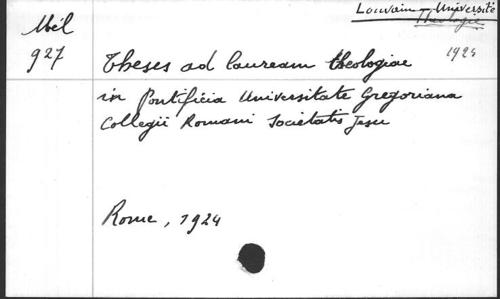 Louvain - Université
Théologie
Mél
927
1924
Theses ad lauream theologiae
in Pontificia Universitate Gregoriana
Collegii Romani Societatis Jesu
Rome, 1924